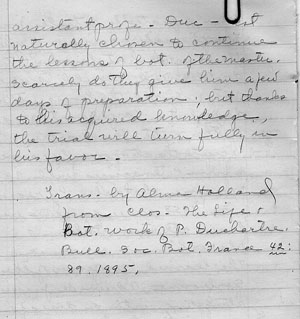 assistant prof. - Duc - st
naturally chosen to continue
the lessons of bot. of the master.
Scarcely do they give him a few
days of preparation, but thanks
to his acquired knowledge,
the trial will turn fully in
his favor.
Trans. by Alma Holland
from Clos. The Life &
Bot. work of P. Duchartre.
Bull. Soc. Bot. France 42:
89. 1895.